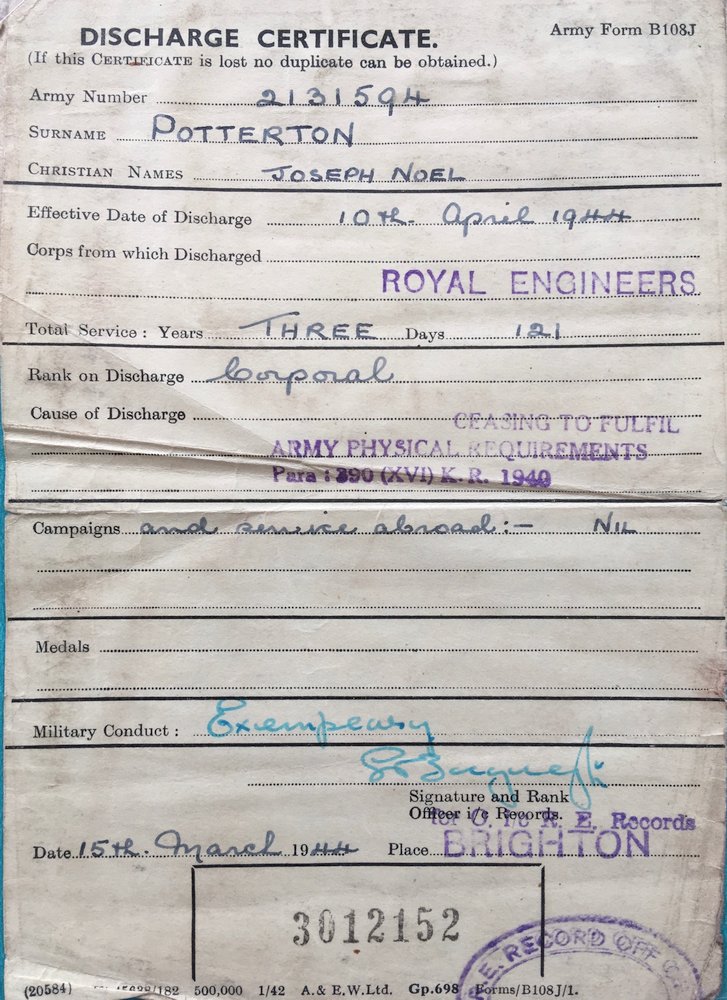 DISCHARGE CERTIFICATE. Army Form B108J
(If this CERTIFICATE is lost no duplicate can be obtained.)
Army Number 2131594
SURNAME POTTERTON
CHRISTIAN NAMES JOSEPH NOEL
Effective Date of Discharge 10th. April 1944
Corps from which Discharged
ROYAL ENGINEERS
Total Service: Years THREE Days 121
Rank on Discharge Corporal
Cause of Discharge CEASING TO FULFIL
ARMY PHYSICAL REQUIREMENTS
Para: 390 (XVI) K. R. 1940
Campaigns and service abroad:- NIL
Medals
Military Conduct: Exemplary
Signature and Rank
Officer i/c Records.
for O. i/c R. E. Records
Date 15th. March 1944 Place BRIGHTON
3012152
R.E. RECORD OFF
(20584) /182 500,000 1/42 A. & E.W. Ltd. Gp.698 Forms/B108J/1.